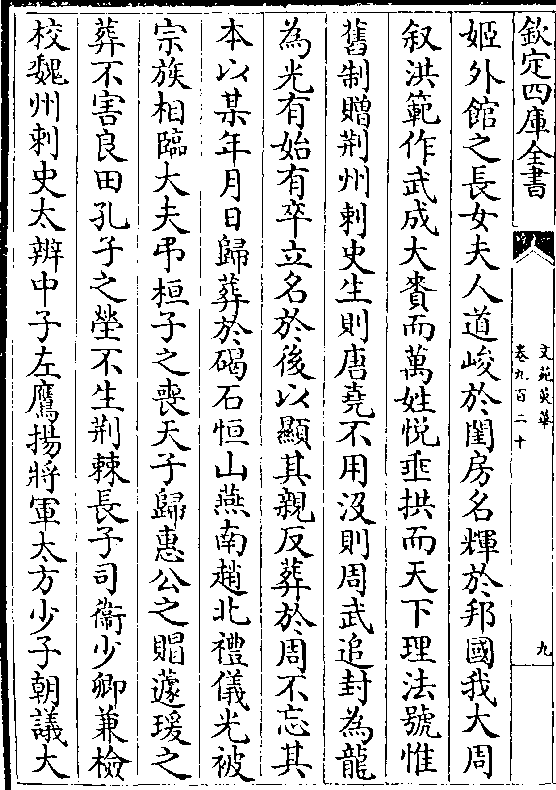 欽定四庫全書
文苑英華
卷九百二十
九
姬外館之長女夫人道峻於閨房名輝於邦國我大周
叙洪範作武成大賚而萬姓悦垂拱而天下理法號惟
舊制贈荆州刺史生則唐堯不用沒則周武追封為龍
為光有始有卒立名於後以顯其親反葬於周不忘其
本以某年月日歸葬於碣石恒山燕南趙北禮儀光被
宗族相臨大夫弔桓子之喪天子歸惠公之賵蘧瑗之
葬不害良田孔子之塋不生荆棘長子司衞少卿兼檢
校魏州刺史太辨中子左鷹揚將軍太方少子朝議大